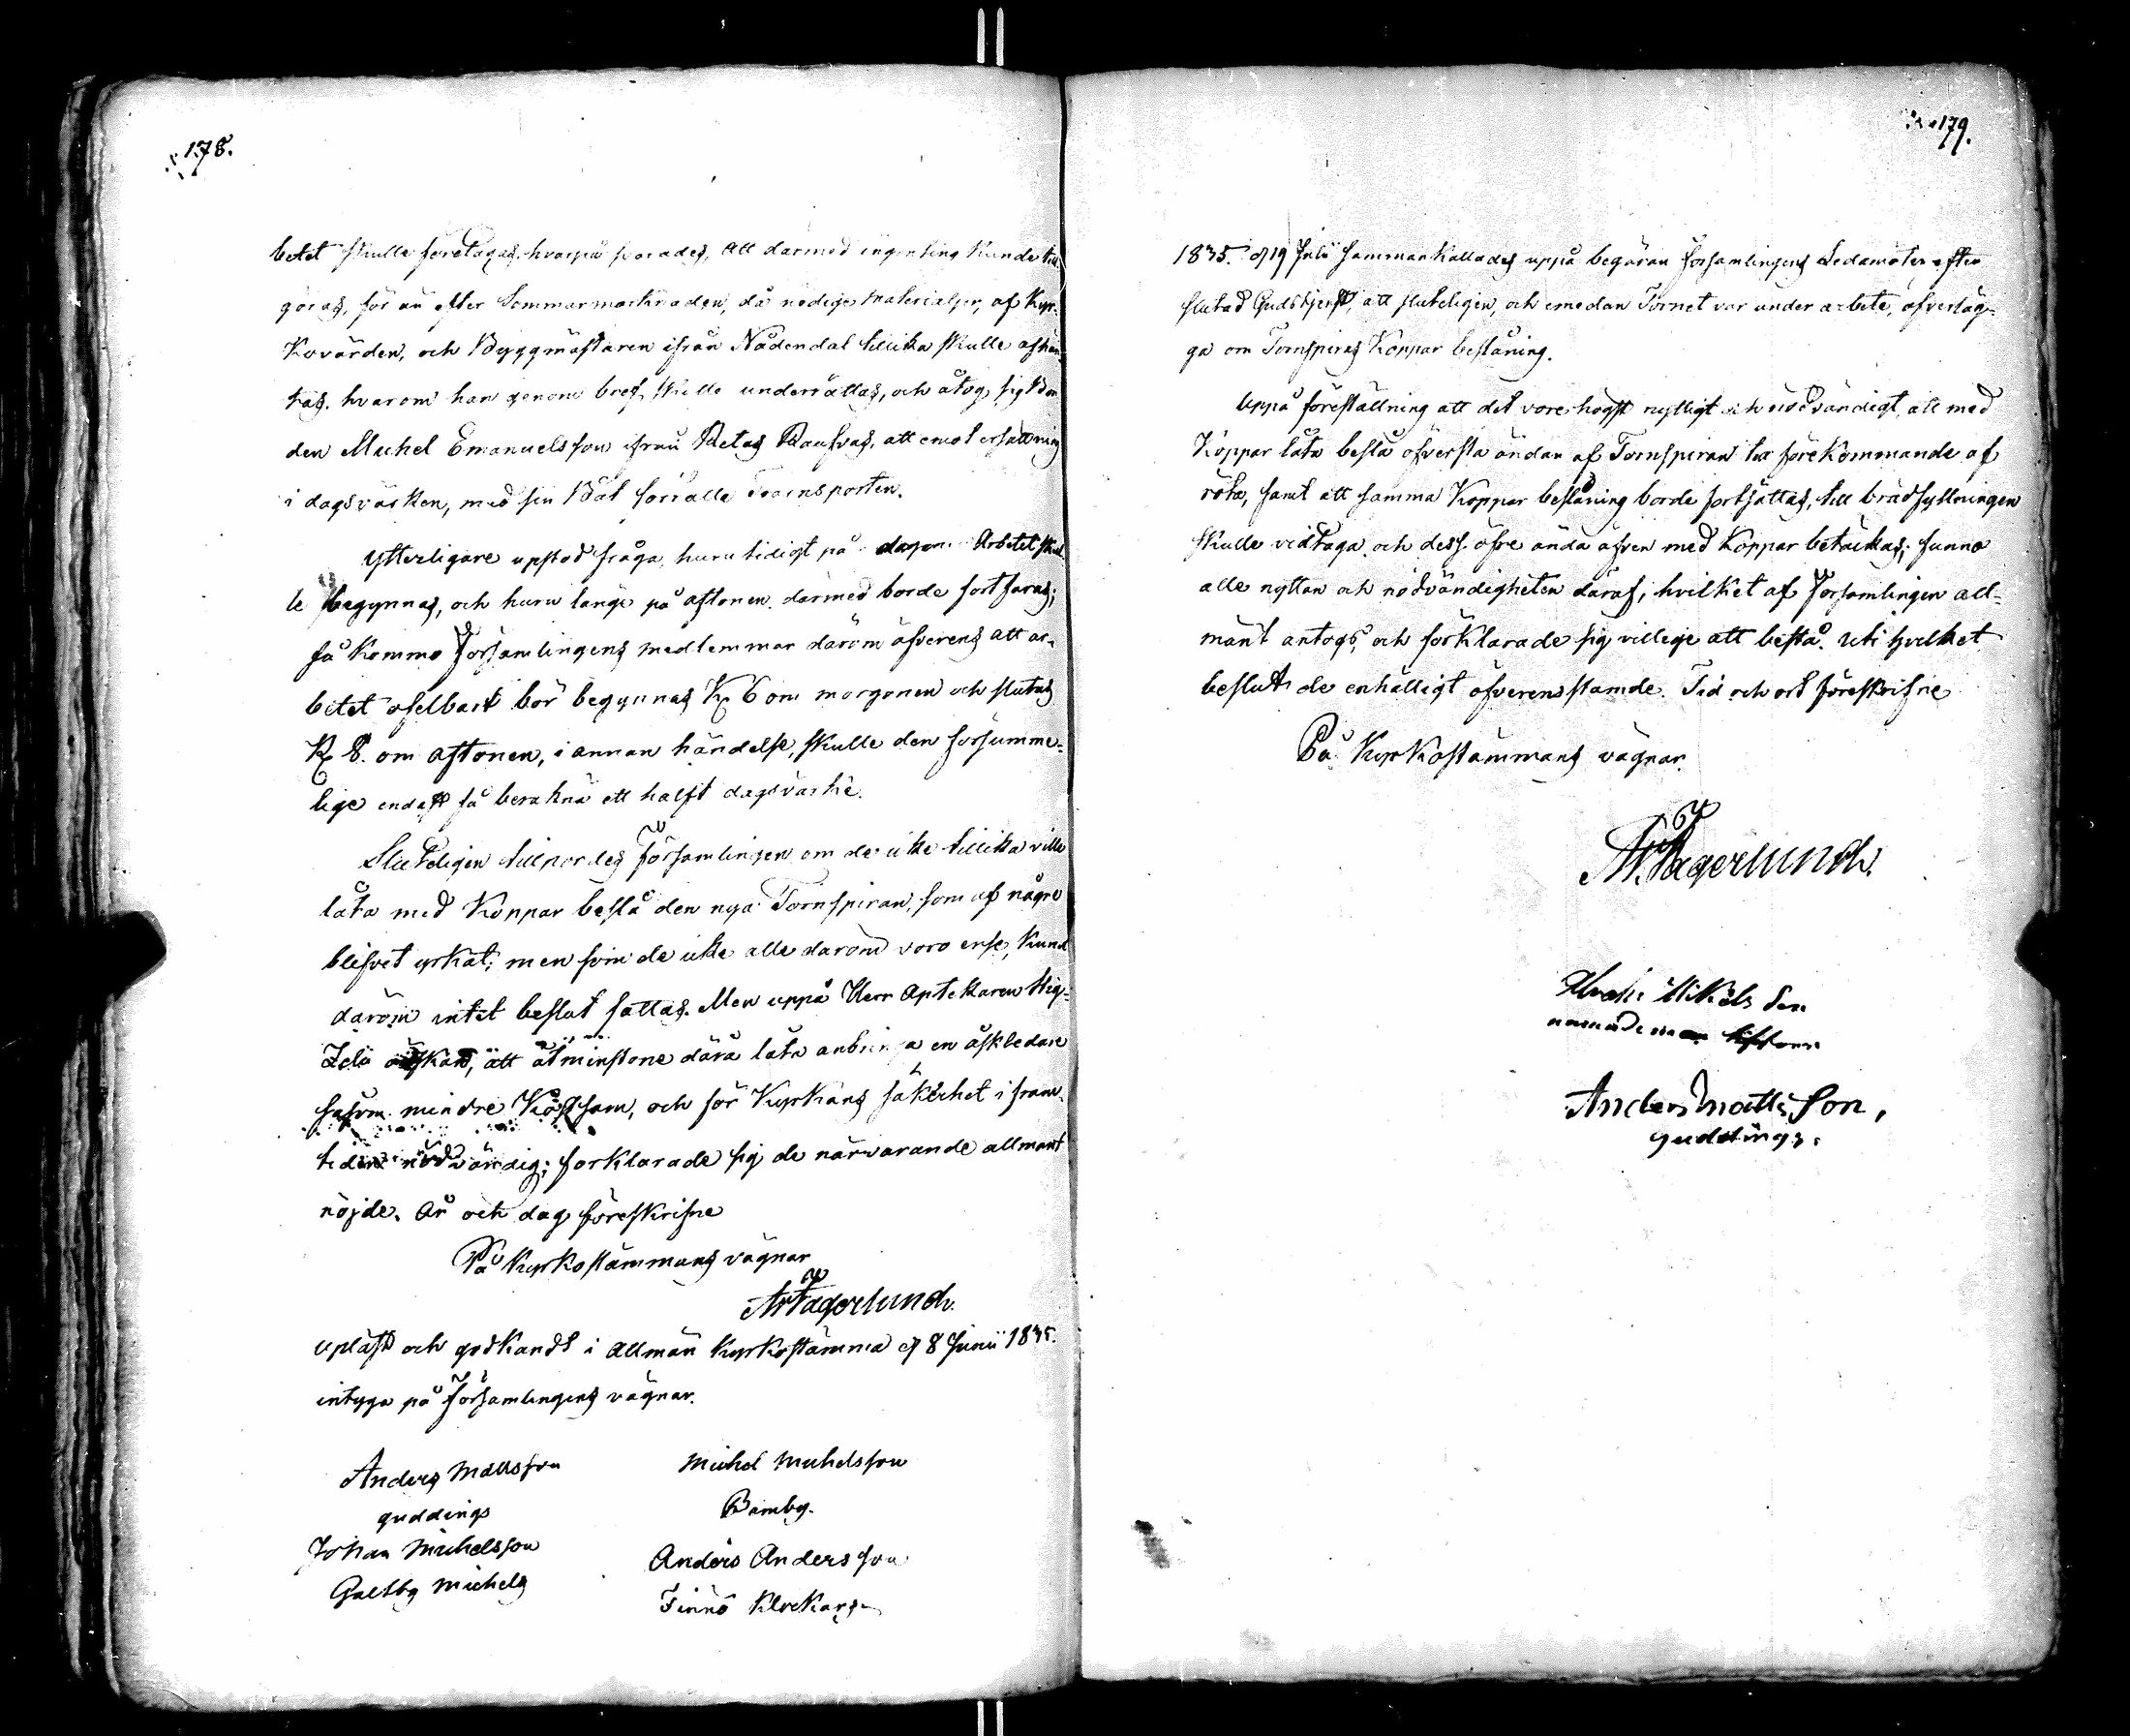 178.
betet skulle företagas, hvarpå svarades, att därmed ingenting kunde till-
göras, för än efter Sommarmarknaden, då nödige materialier, af Kyr-
kovärden, och Byggmästaren ifrån Nådendal tillika skulle afhän-
tas. hvarom han genom bref skulle underrättas, och åtog sig Bon
den Michel Emanuelsson ifrån Retas Raufvas, att emot ersättning
i dagsvärken, med sin Båt förrätte Transporten.
Ytterligare upstod fråga, huru tidigt på dagen Arbetet skul
le begynnas, och huru länge på aftonen därmed borde fortfaras;
så kommo Församlingens medlemmar därom öfverens att ar-
betet ofelbart bör begynnas Kl 6 om morgonen och slutas
Kl 8. om aftonen, i annan händelse, skulle den försumme-
lige endast få beräkna ett halft dagsvärke.
Sluteligen tillspordes Församlingen om de icke tillika ville
låta med Koppar beslå den nya Tornspiran, som af någre
blifvet yrkat; men som de icke alle därom voro ense, kund
därom intet beslut fattas. Men uppå Herr Aptekaren
åskan, att åtminstone dära låta anbringa en åskledare
såsom mindre Kostsam, och för Kyrkans säkerhet i fram-
tiden nödvändig; förklarade sig de närvarande allmänt
nöjde. År och dag föreskrifne
På Kyrkostämmans vägnar
A Fagerlund.
Upläst och godkändt i allmän Kyrkostämma d 8 Junii 1835.
intyga på Församlingens vägnar.
Anders Mattsson Michel Michelsson
guddings Bamby.
Johan Michelsson Anders Andersson
Galtby Michels Finnö Klockars
179.
1835. d 19 Julii sammankallades uppå begäran Församlingens Ledamöter efter
slutad Gudstjenst, att sluteligen, och emedan Tornet var under arbete, öfverläg-
ga om Tornspiras Koppar beslåning.
Uppå föreställning att det vore högst nyttigt och nödvändigt, att med
Koppar låta beslå öfversta ändan af Tornspiran til förekommande af
röta, samt att samma Koppar beslåning borde fortsättas, till brädfyllningen
skulle vidtaga och dess öfre ända äfven med Koppar betäckas; funno
alle nyttan och nödvändigheten däraf, hvilket af Församlingen all-
mänt antogs, och förklarade sig villige att bestå. Uti hvilket
beslut de enhälligt öfverensstämde. Tid och ort föreskrifne
På Kyrkostämmans vägnar.
A Fagerlund.
Mikels Son
Anders Matts Son,
guddings.